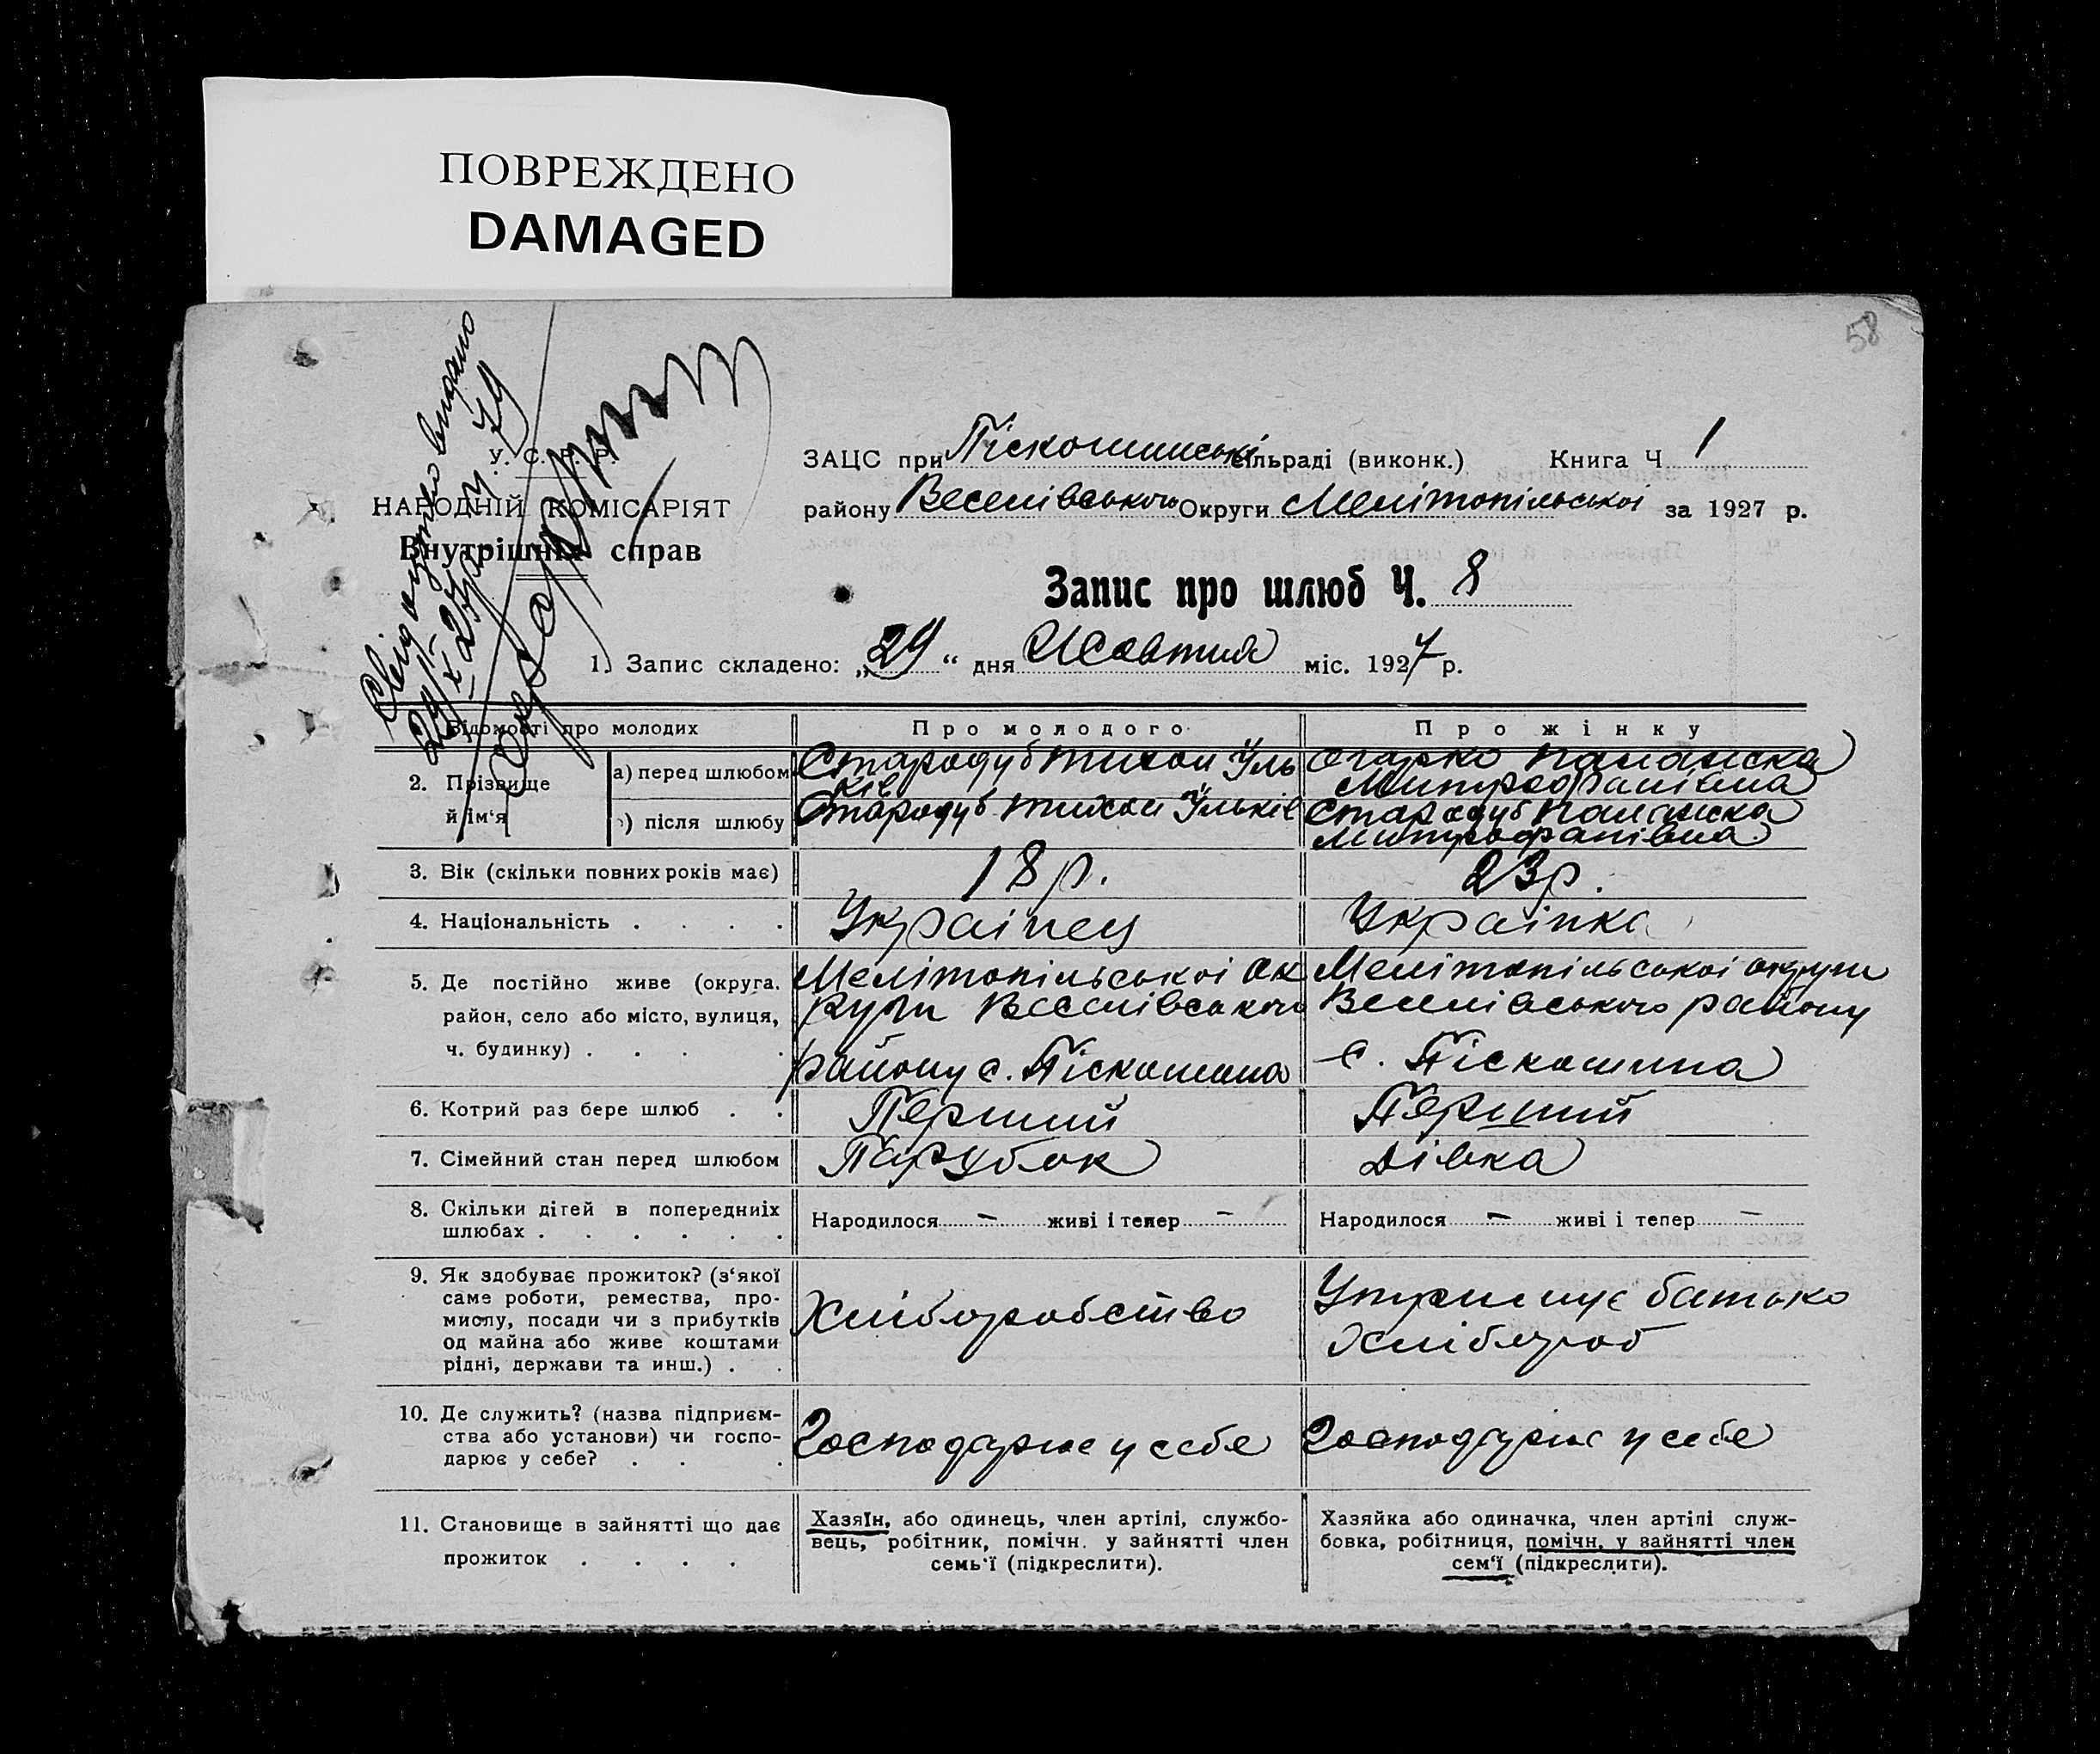 ПОВРЕЖДЕНО
DAMAGED
58
Свідоцтво видано
29/X 27 р. ч. 79
У. С. Р. Р.
НАРОДНІЙ КОМІСАРІЯТ
Внутрішніх справ
ЗАЦС при Піскошинські сільраді (виконк.) Книга Ч 1
району Веселівського Округи Мелітопільської за 1927 р.
Запис про шлюб Ч. 8
1. Запис складено: „29“ дня Жовтня міс. 1927 р.
Відомості про молодих Про молодого Про жінку
2. Прізвище й ім‘я
а) перед шлюбом Стародуб Тихон Ульків Огарко Паланска Митрофанівна
б) після шлюбу Стародуб Тихон Ульків Стародуб Паланска Митрофанівна
3. Вік (скільки повних років має) 18 р. 23 р.
4. Національність . . . . Українец Українка
5. Де постійно живе (округа. Мелітопільської ок Мелітопільської округи
район, село або місто, вулиця, руги Веселівського Веселівського району
ч. будинку) . . . . району с. Піскошина с. Піскошина
6. Котрий раз бере шлюб . . Перший Перший
7. Сімейний стан перед шлюбом Парубок Дівка
8. Скільки дітей в попередніх Народилося – живі і тепер – Народилося – живі і тепер –
шлюбах . . . . . .
9. Як здобуває прожиток? (з‘якої
саме роботи, ремества, про-
мислу, посади чи з прибутків
од майна або живе коштами
рідні, держави та инш.) . .
Хліборобство Утримує батько
Хлібороб
10. Де служить? (назва підприєм-
ства або установи) чи госпо-
дарює у себе? . . .
Господарює у себе Господарює у себе
11. Становище в зайнятті що дає
прожиток . . . .
Хазяїн, або одинець, член артілі, службо-
вець, робітник, помічн. у зайнятті член
семь‘ї (підкреслити).
Хазяйка або одиначка, член артілі служ-
бовка, робітниця, помічн. у зайнятті член
сем‘ї (підкреслити).